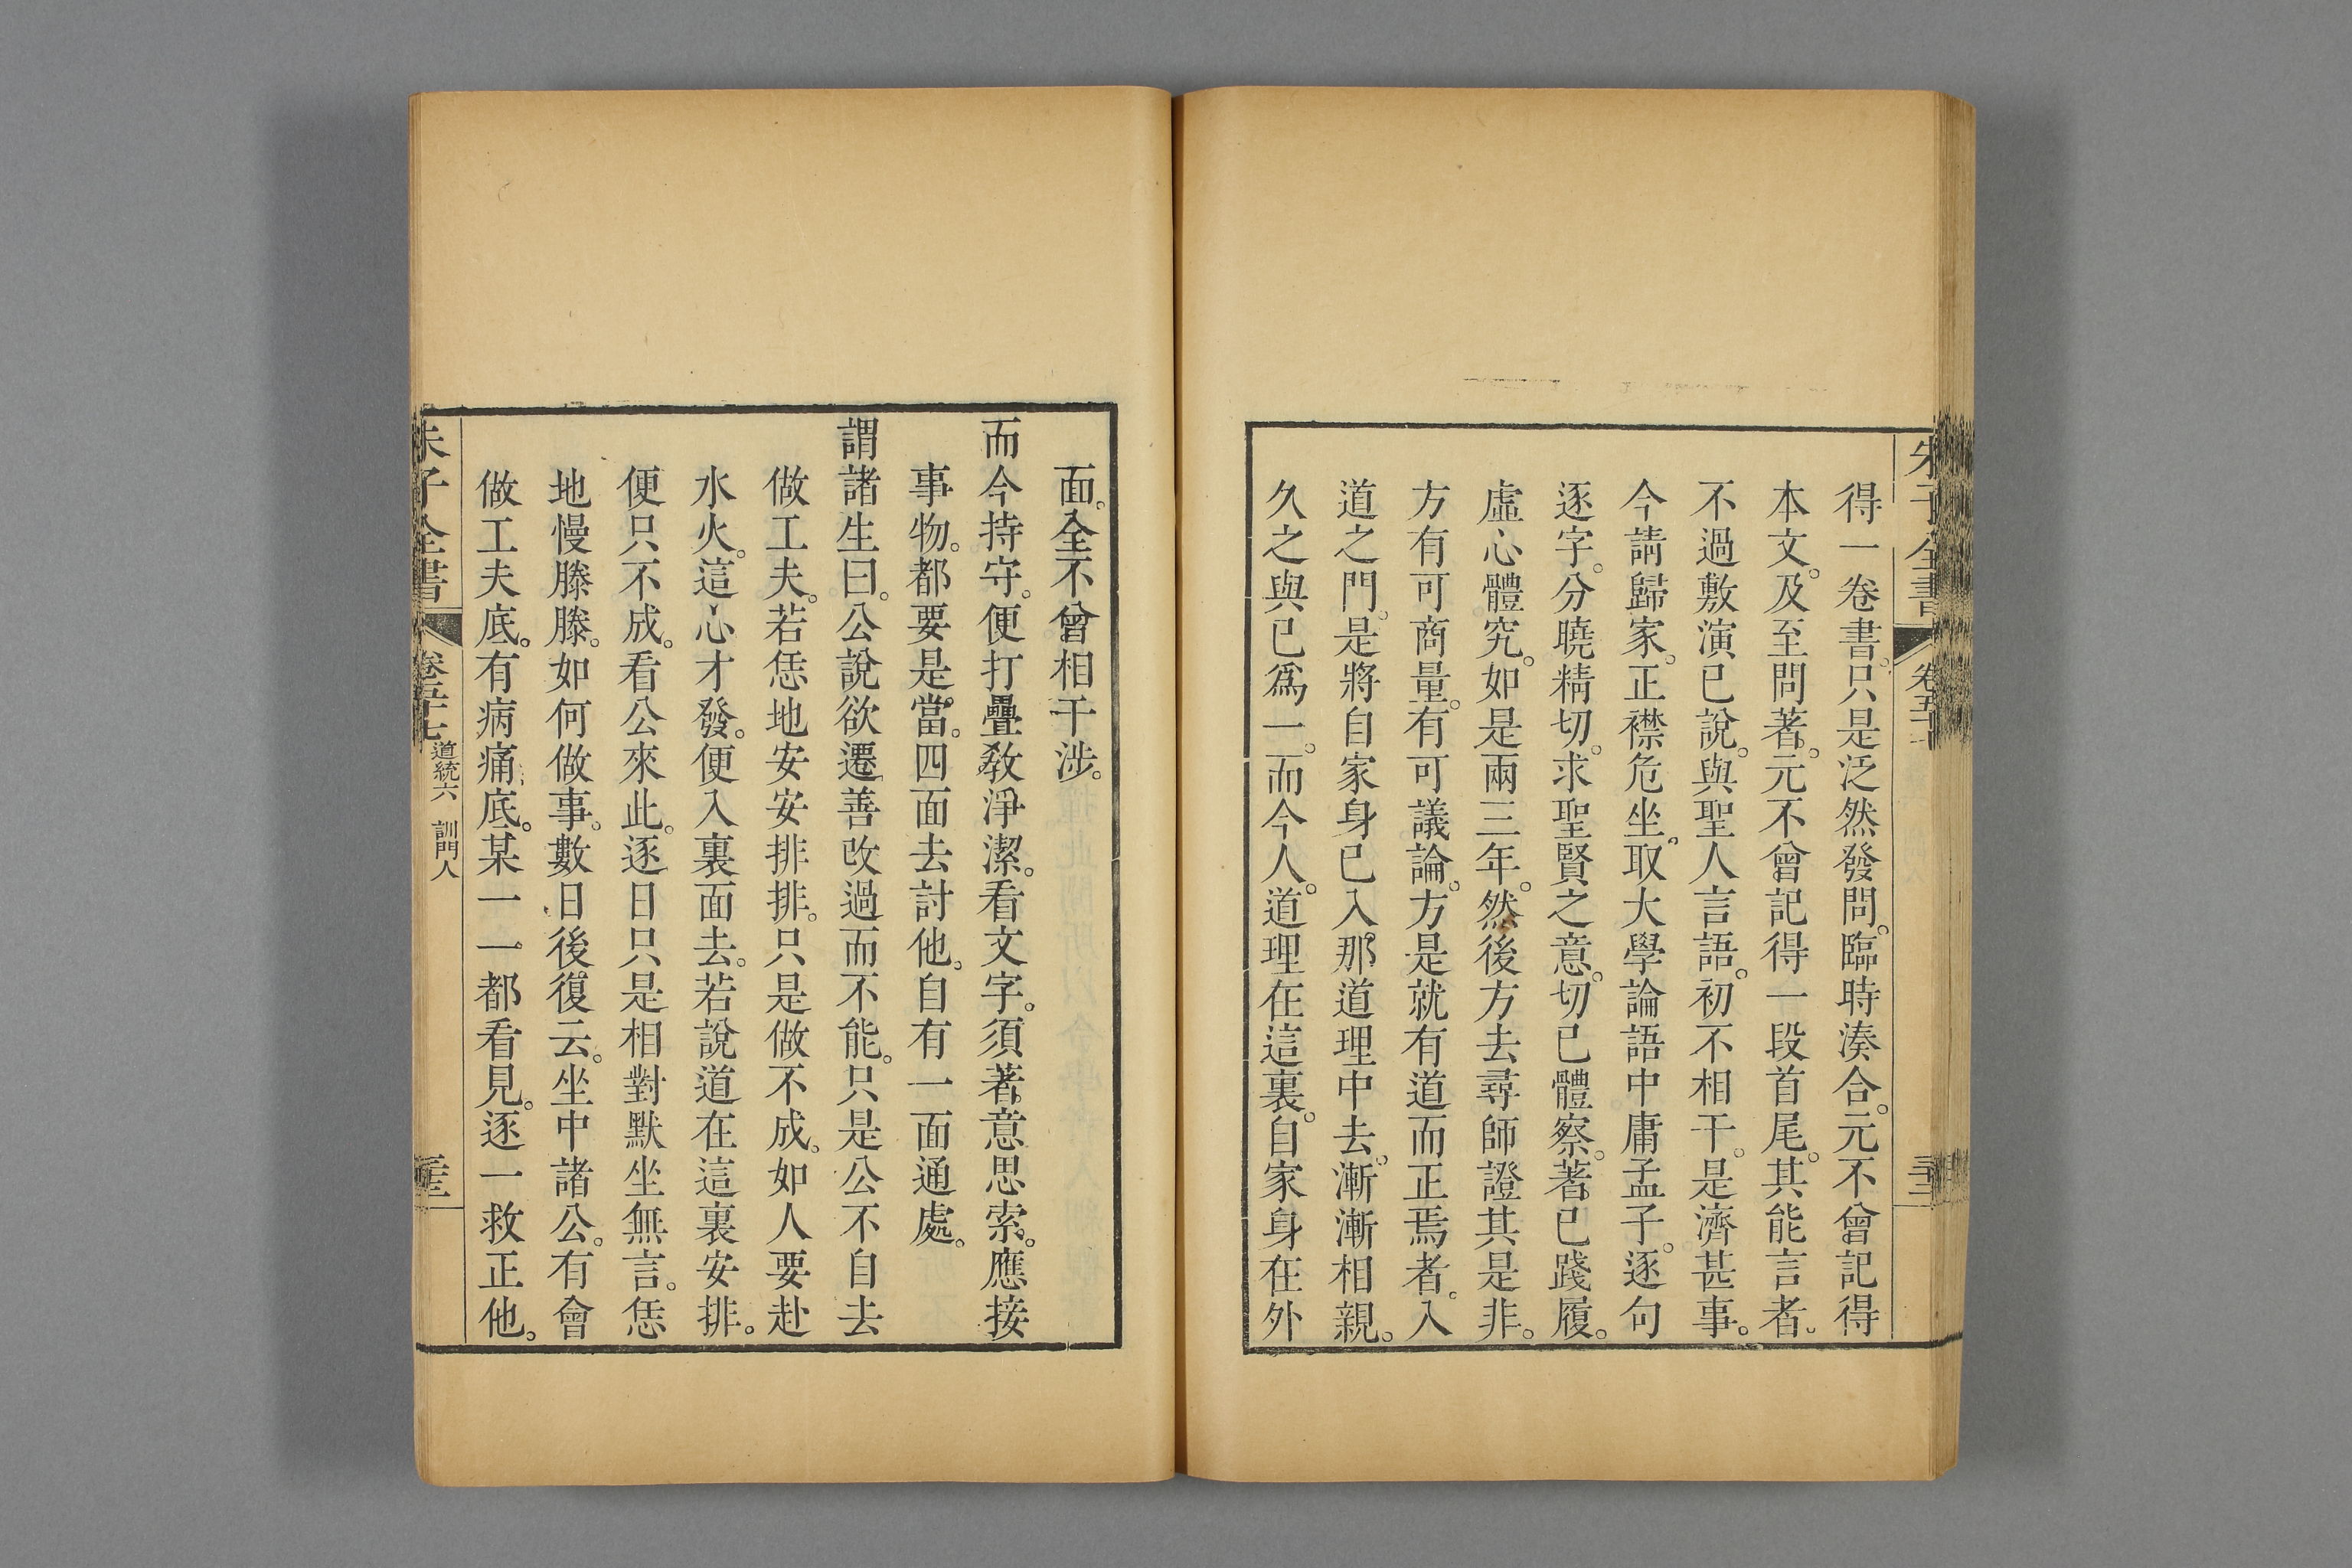 朱子全書 卷五十七
得一卷書。只是泛然發問。臨時湊合。元不曾記得
本文。及至問著。元不曾記得一段首尾。其能言者。
不過敷演已說。與聖人言語。初不相干。是濟甚事。
今請歸家。正襟危坐。取大學論語中庸孟子。逐句
逐字。分曉精切。求聖賢之意。切已體察。著已踐履。
虛心體究。如是兩三年。然後方去尋師證其是非。
方有可商量。有可議論。方是就有道而正焉者。入
道之門。是將自家身已入那道理中去。漸漸相親。
久之與已爲一。而今人。道理在這裏。自家身在外
面。全不曾相干涉。
而今持守。便打疊敎淨潔。看文字。須著意思索。應接
事物。都要是當。四面去討他。自有一面通處。
謂諸生曰。公說欲遷善改過而不能。只是公不自去
做工夫。若恁地安安排排。只是做不成。如人要赴
水火。這心才發。便入裏面去。若說道在這裏安排。
便只不成。看公來此。逐日只是相對默坐無言。恁
地慢滕滕。如何做事。數日後復云。坐中諸公。有會
做工夫底。有病痛底。某一一都看見。逐一救正他。
朱子全書 卷五十七 道統六 訓門人